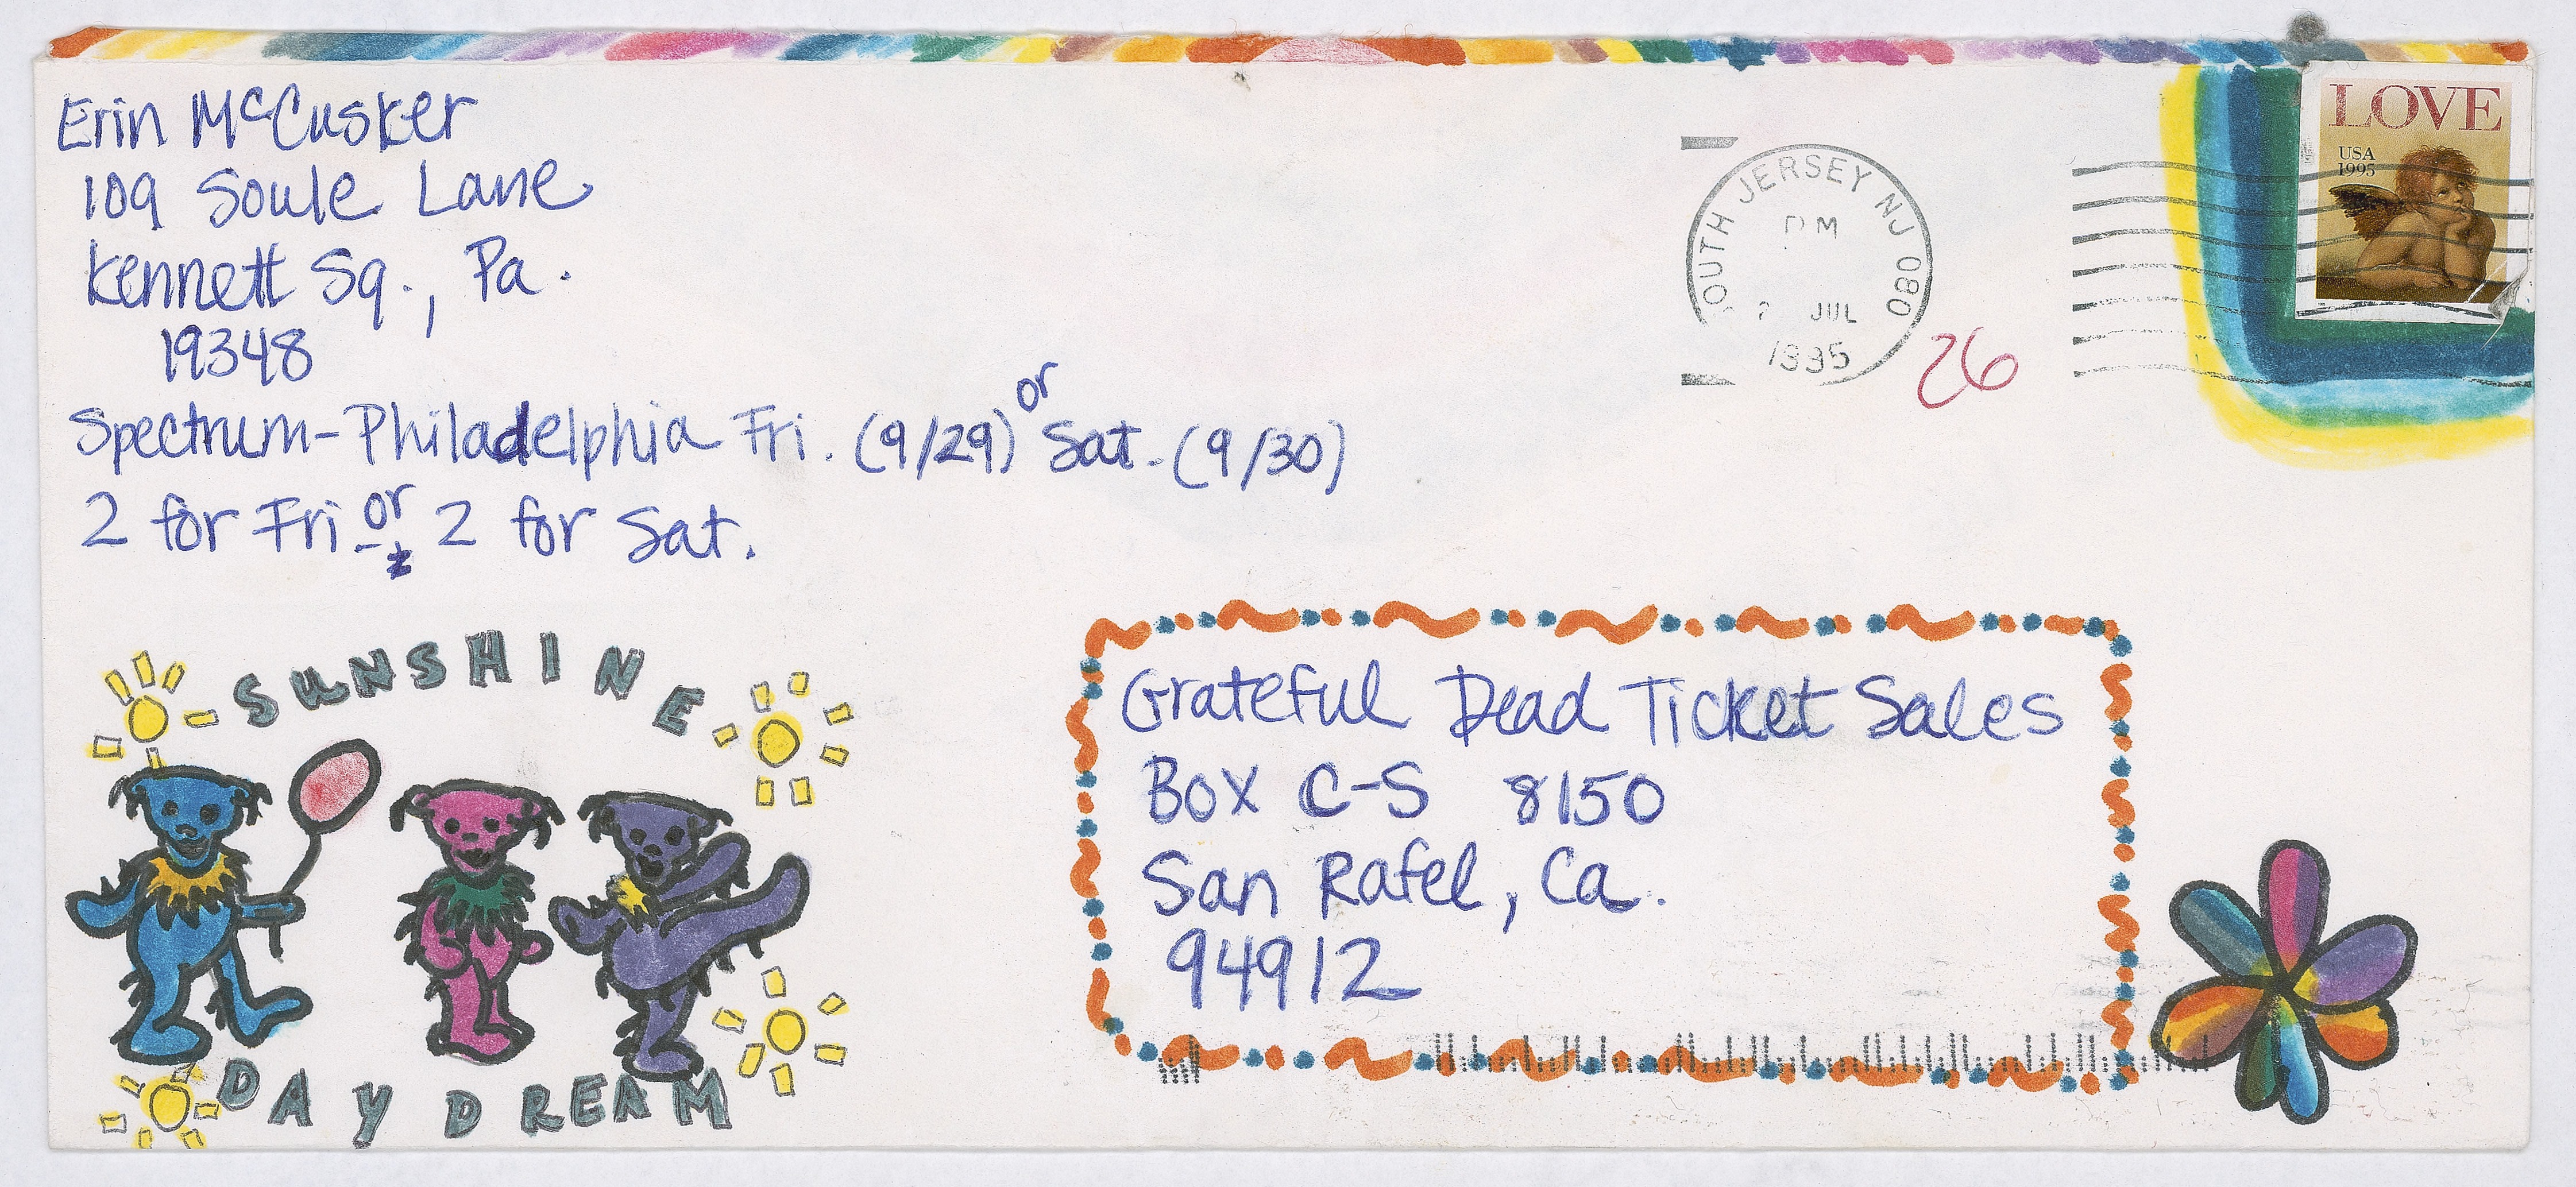 Erin McCusker
109 Soule Lane
Kennett Sq., Pa.
19348
Spectrum-Philadelphia Fri. (9/29) or Sat. (9/30)
2 for Fri or 2 for Sat.
SOUTH JERSEY NJ 080
PM
JUL
1995
26
LOVE
USA
1995
SUNSHINE
DAYDREAM
Grateful Dead Ticket Sales
Box C-S 8150
San Rafel, Ca.
94912